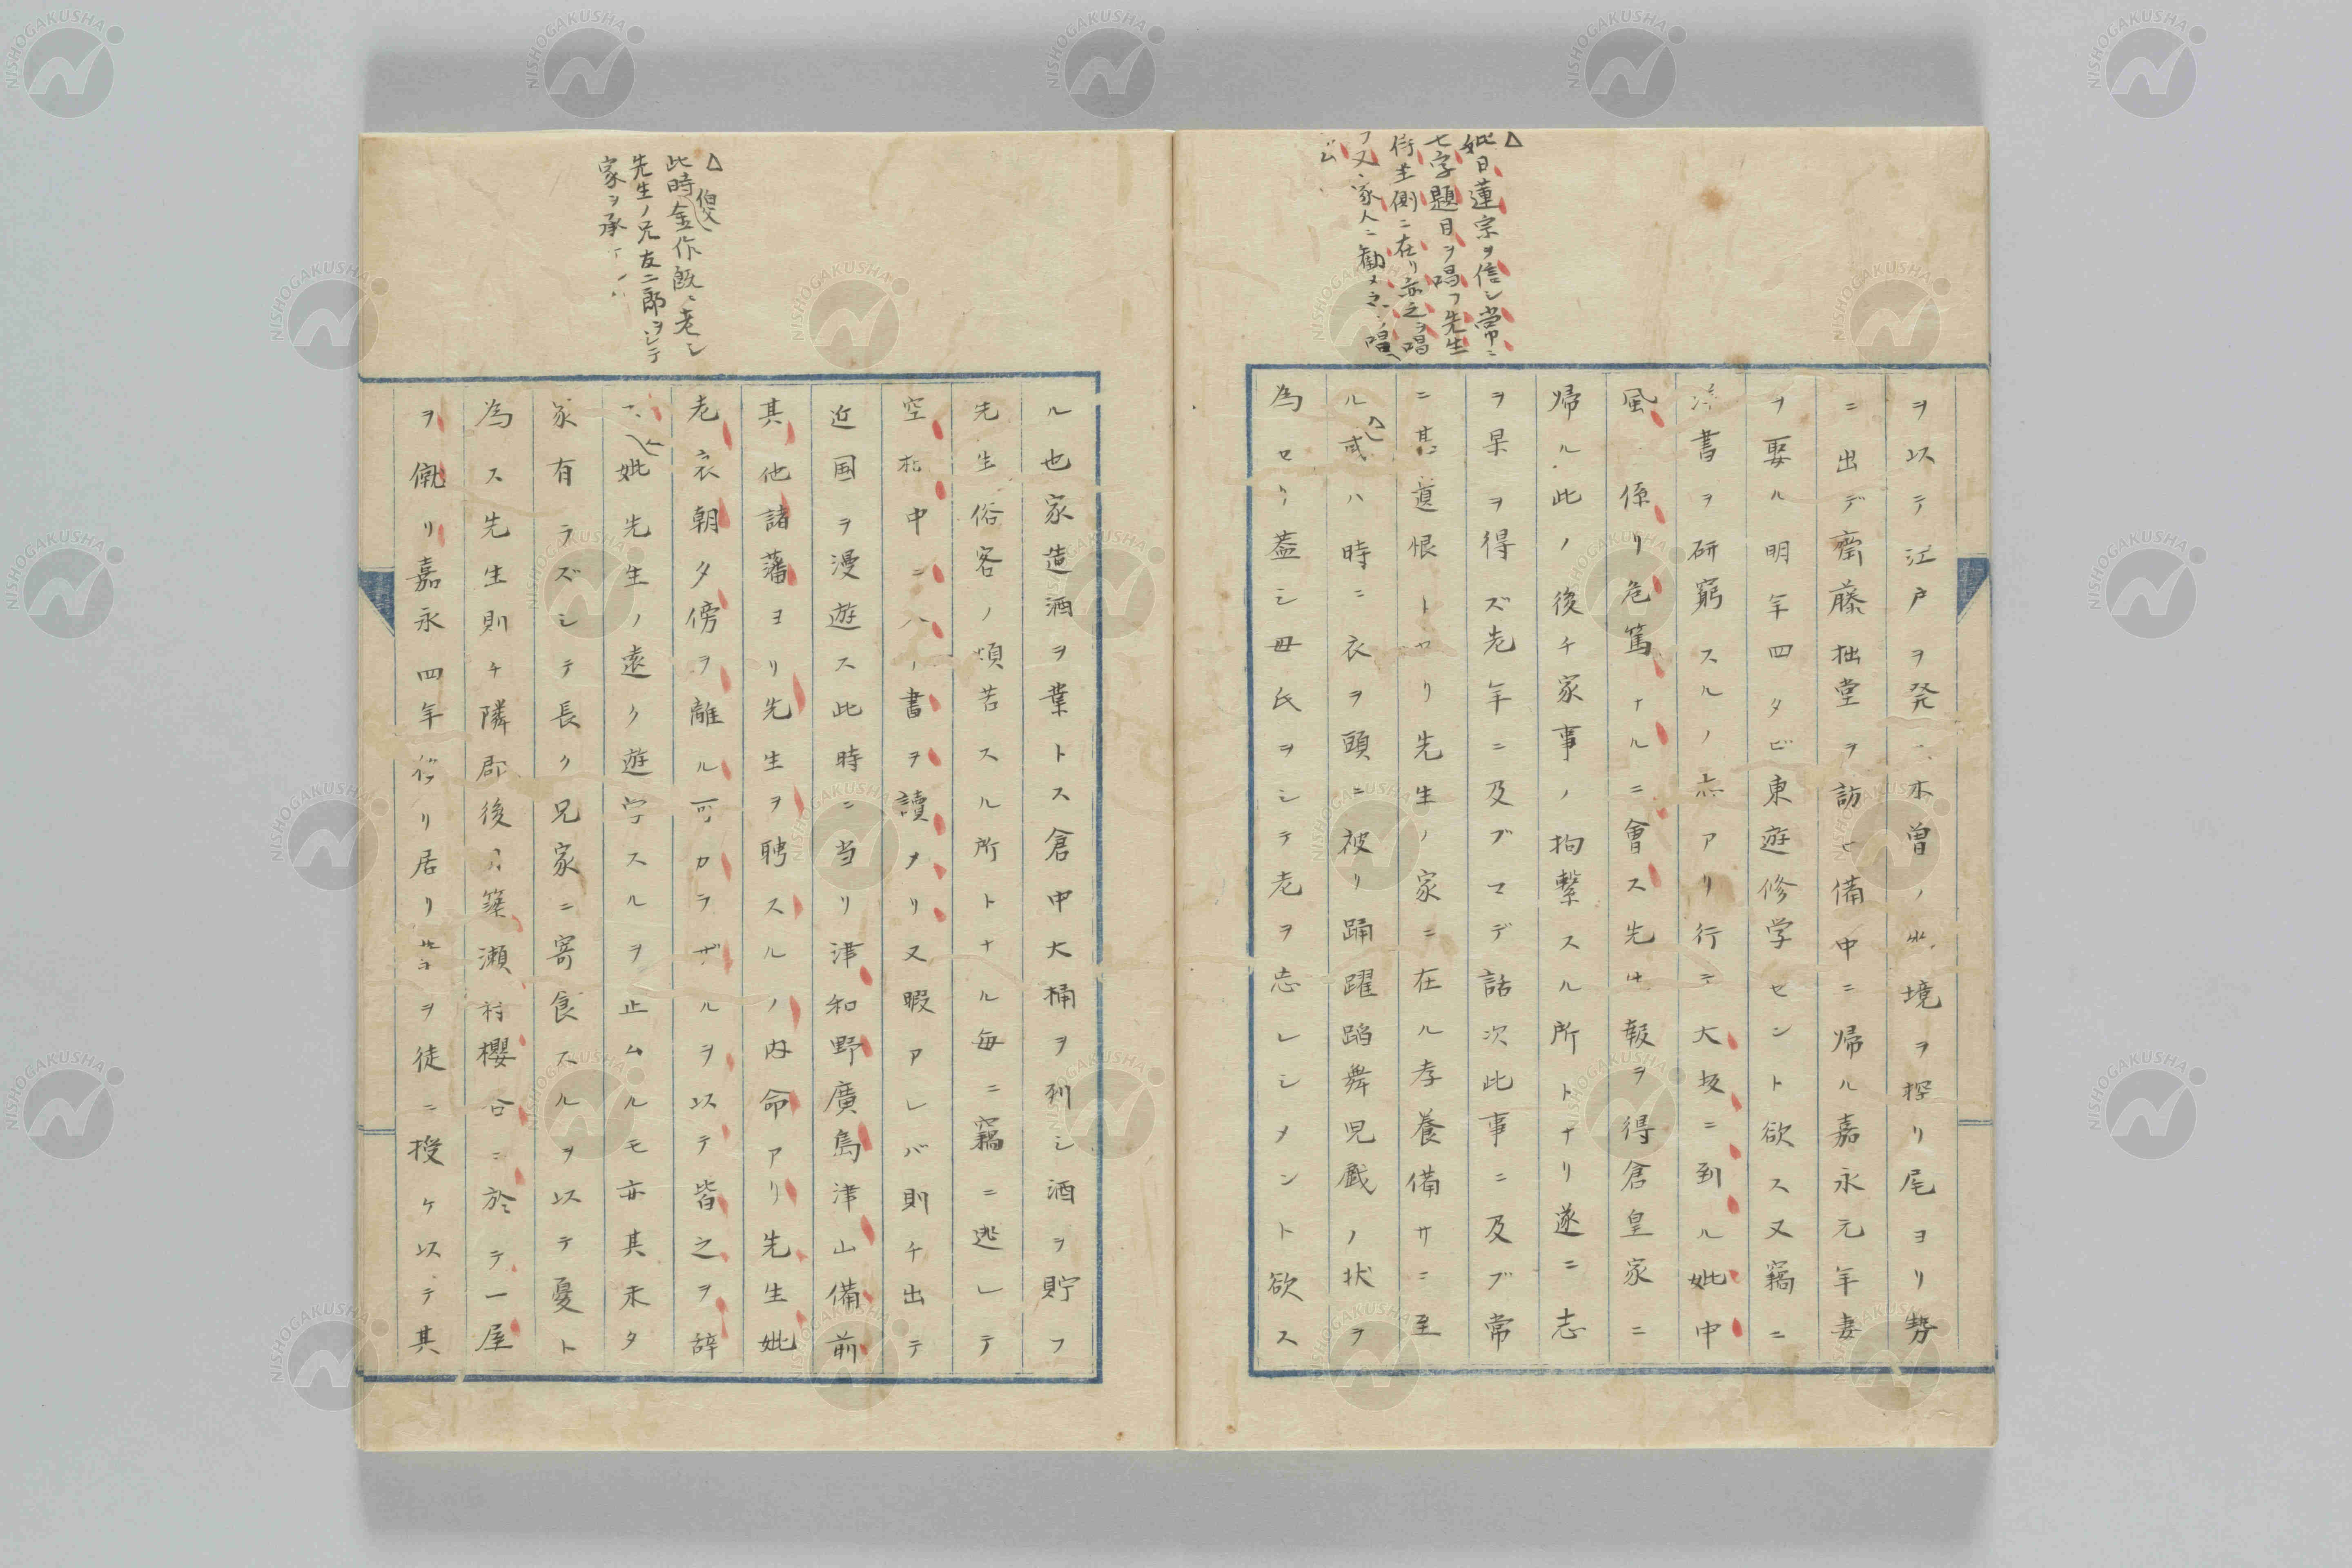 △
妣日蓮宗ヲ信シ常ニ
七字題目ヲ唱フ先生
侍坐側ニ在リ亦之ヲ唱
フ又家人ニ勧メ之ヲ唱ヘ
シム
ヲ以テ江戸ヲ発シ木曽ノ山境ヲ探リ尾ヨリ勢
ニ出デ齋藤拙堂ヲ訪ヒ備中ニ帰ル嘉永元年妻
ヲ娶ル明年四タビ東遊修学セント欲ス又竊ニ
洋書ヲ研窮スルノ志アリ行テ大坂ニ到ル妣中
風ニ係リ危篤ナルニ會ス先生報ヲ得倉皇家ニ
帰ル此ノ後チ家事ノ拘繋スル所トナリ遂ニ志
ヲ果ヲ得ズ老年ニ及ブマデ話次此事ニ及ブ常
ニ甚遺恨トセリ先生ノ家ニ在ル孝養備サニ至
ル或ハ時ニ衣ヲ頭ニ被リ踊躍蹈舞児戯ノ状ヲ
為セリ蓋シ母氏ヲシテ老ヲ忘レシメント欲ス
△
此時伯父金作既ニ老シ
先生ノ兄友三郎ヲシテ
家ヲ承
ル也家造酒ヲ業トス倉中大桶ヲ列シ酒ヲ貯フ
先生俗客ノ煩苦スル所トナル毎ニ竊ニ逃レテ
空桶中ニ入ノ書ヲ讀メリ又暇アレバ則チ出テ
近国ヲ漫遊ス此時ニ当リ津和野廣島津山備前
其他諸藩ヨリ先生ヲ聘スルノ内命アリ先生妣
老衣朝夕傍ヲ離ル可カラザルヲ以テ皆之ヲ辞
妣先生ノ遠ク遊学スルヲ止ムルモ亦其未タ
家有ラズシテ長ク兄家ニ寄食スルヲ以テ憂ト
為ス先生則チ隣郡後月簗瀬村櫻谷ニ於テ一屋
ヲ僦リ嘉永四年移リ居リ業ヲ徒ニ授ケ以テ其